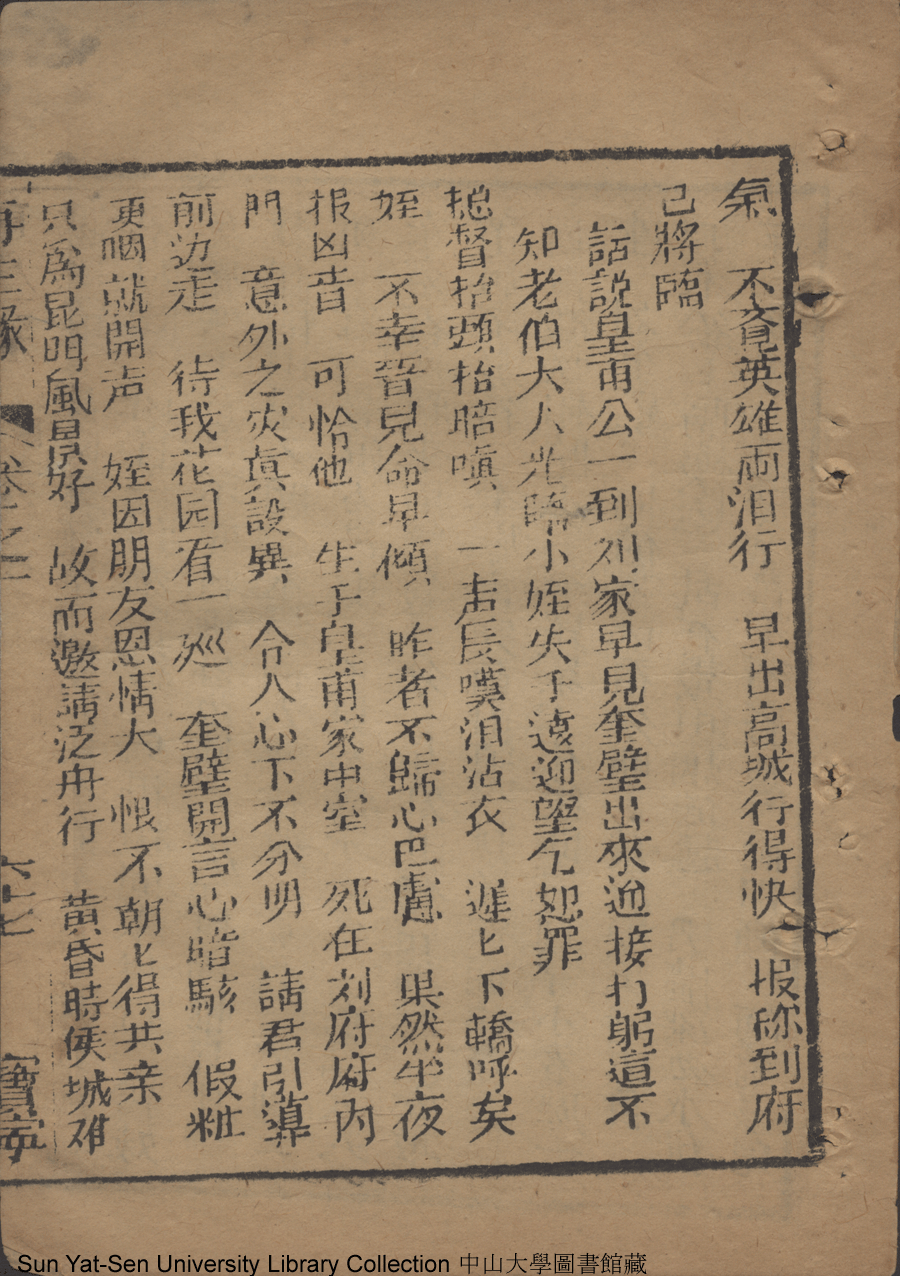 氣　不覺英雄両泪行　早出高城行得快　报称到府
已將臨
話説皇甫公一到刘家早見奎璧出來迎接打躬道不
知老伯大人光臨小姪失于遠迎望乞恕罪
捴督抬頭抬暗嗔　一声長嘆泪沾衣　遲匕下轎呼矣
姪　不幸晉兒命早傾　昨者不歸心巴慮　果然半夜
报凶音　可恰他　生于皇甫家中室　死在刘府府内
門　意外之灾真設異　令人心下不分明　請君引導
前边走　待我花园看一廵　奎璧開言心暗駭　假粧
更咽就開声　姪因朋友恩情大　恨不朝匕得共亲
只爲昆明風景好　故而邀請泛舟行　黄昏時侯城难
再生緣　卷之二　六十七　寶寧
Sun Yat-Sen University Library Collection 中山大學圖書館藏